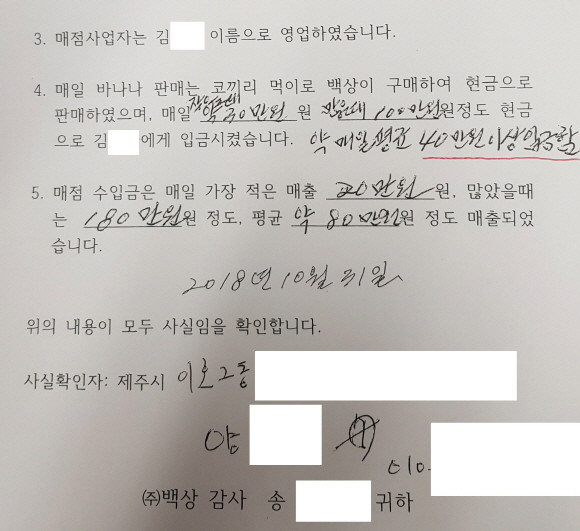 3. 매점사업자는 김 이름으로 영업하였습니다.
4. 매일 바나나 판매는 코끼리 먹이로 백상이 구매하여 현금으로
판매하였으며, 매일 작을때 약 30만원 원 많을때 100만원원정도 현금
으로 김 에게 입금시켰습니다. 약 매일평균 40만원이상입금함
5. 매점 수입금은 매일 가장 적은 매출 20만원 원, 많았을때
는 180만원원 정도, 평균 약 80만원원 정도 매출되었
습니다.
2018년 10월 31일
위의 내용이 모두 사실임을 확인합니다.
사실확인자: 제주시 이호2동
양
㈜백상 감사 송 귀하